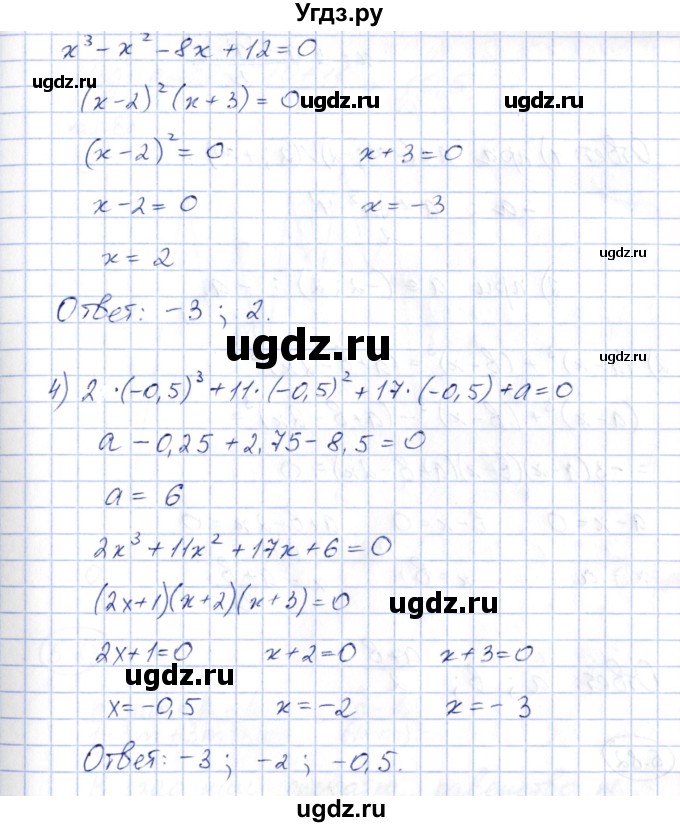 Угдз.ру
x³ - x² - 8x + 12 = 0
ugdz.ru
(x - 2)² (x + 3) = 0 ugdz.ru ugdz.ru
(x - 2)² = 0 x + 3 = 0
x - 2 = 0 x = -3
x = 2 ugdz.ru
Ответ: -3 ; 2.
ugdz.ru
ugdz.ru
4) 2 · (-0,5)³ + 11 · (-0,5)² + 17 · (-0,5) + a = 0
a - 0,25 + 2,75 - 8,5 = 0
a = 6
2x³ + 11x² + 17x + 6 = 0
(2x + 1)(x + 2)(x + 3) = 0 ugdz.ru
2x + 1 = 0 x + 2 = 0 x + 3 = 0
ugdz.ru
x = -0,5 x = -2 x = -3
Ответ: -3 ; -2 ; -0,5.
ugdz.ru
ugdz.ru